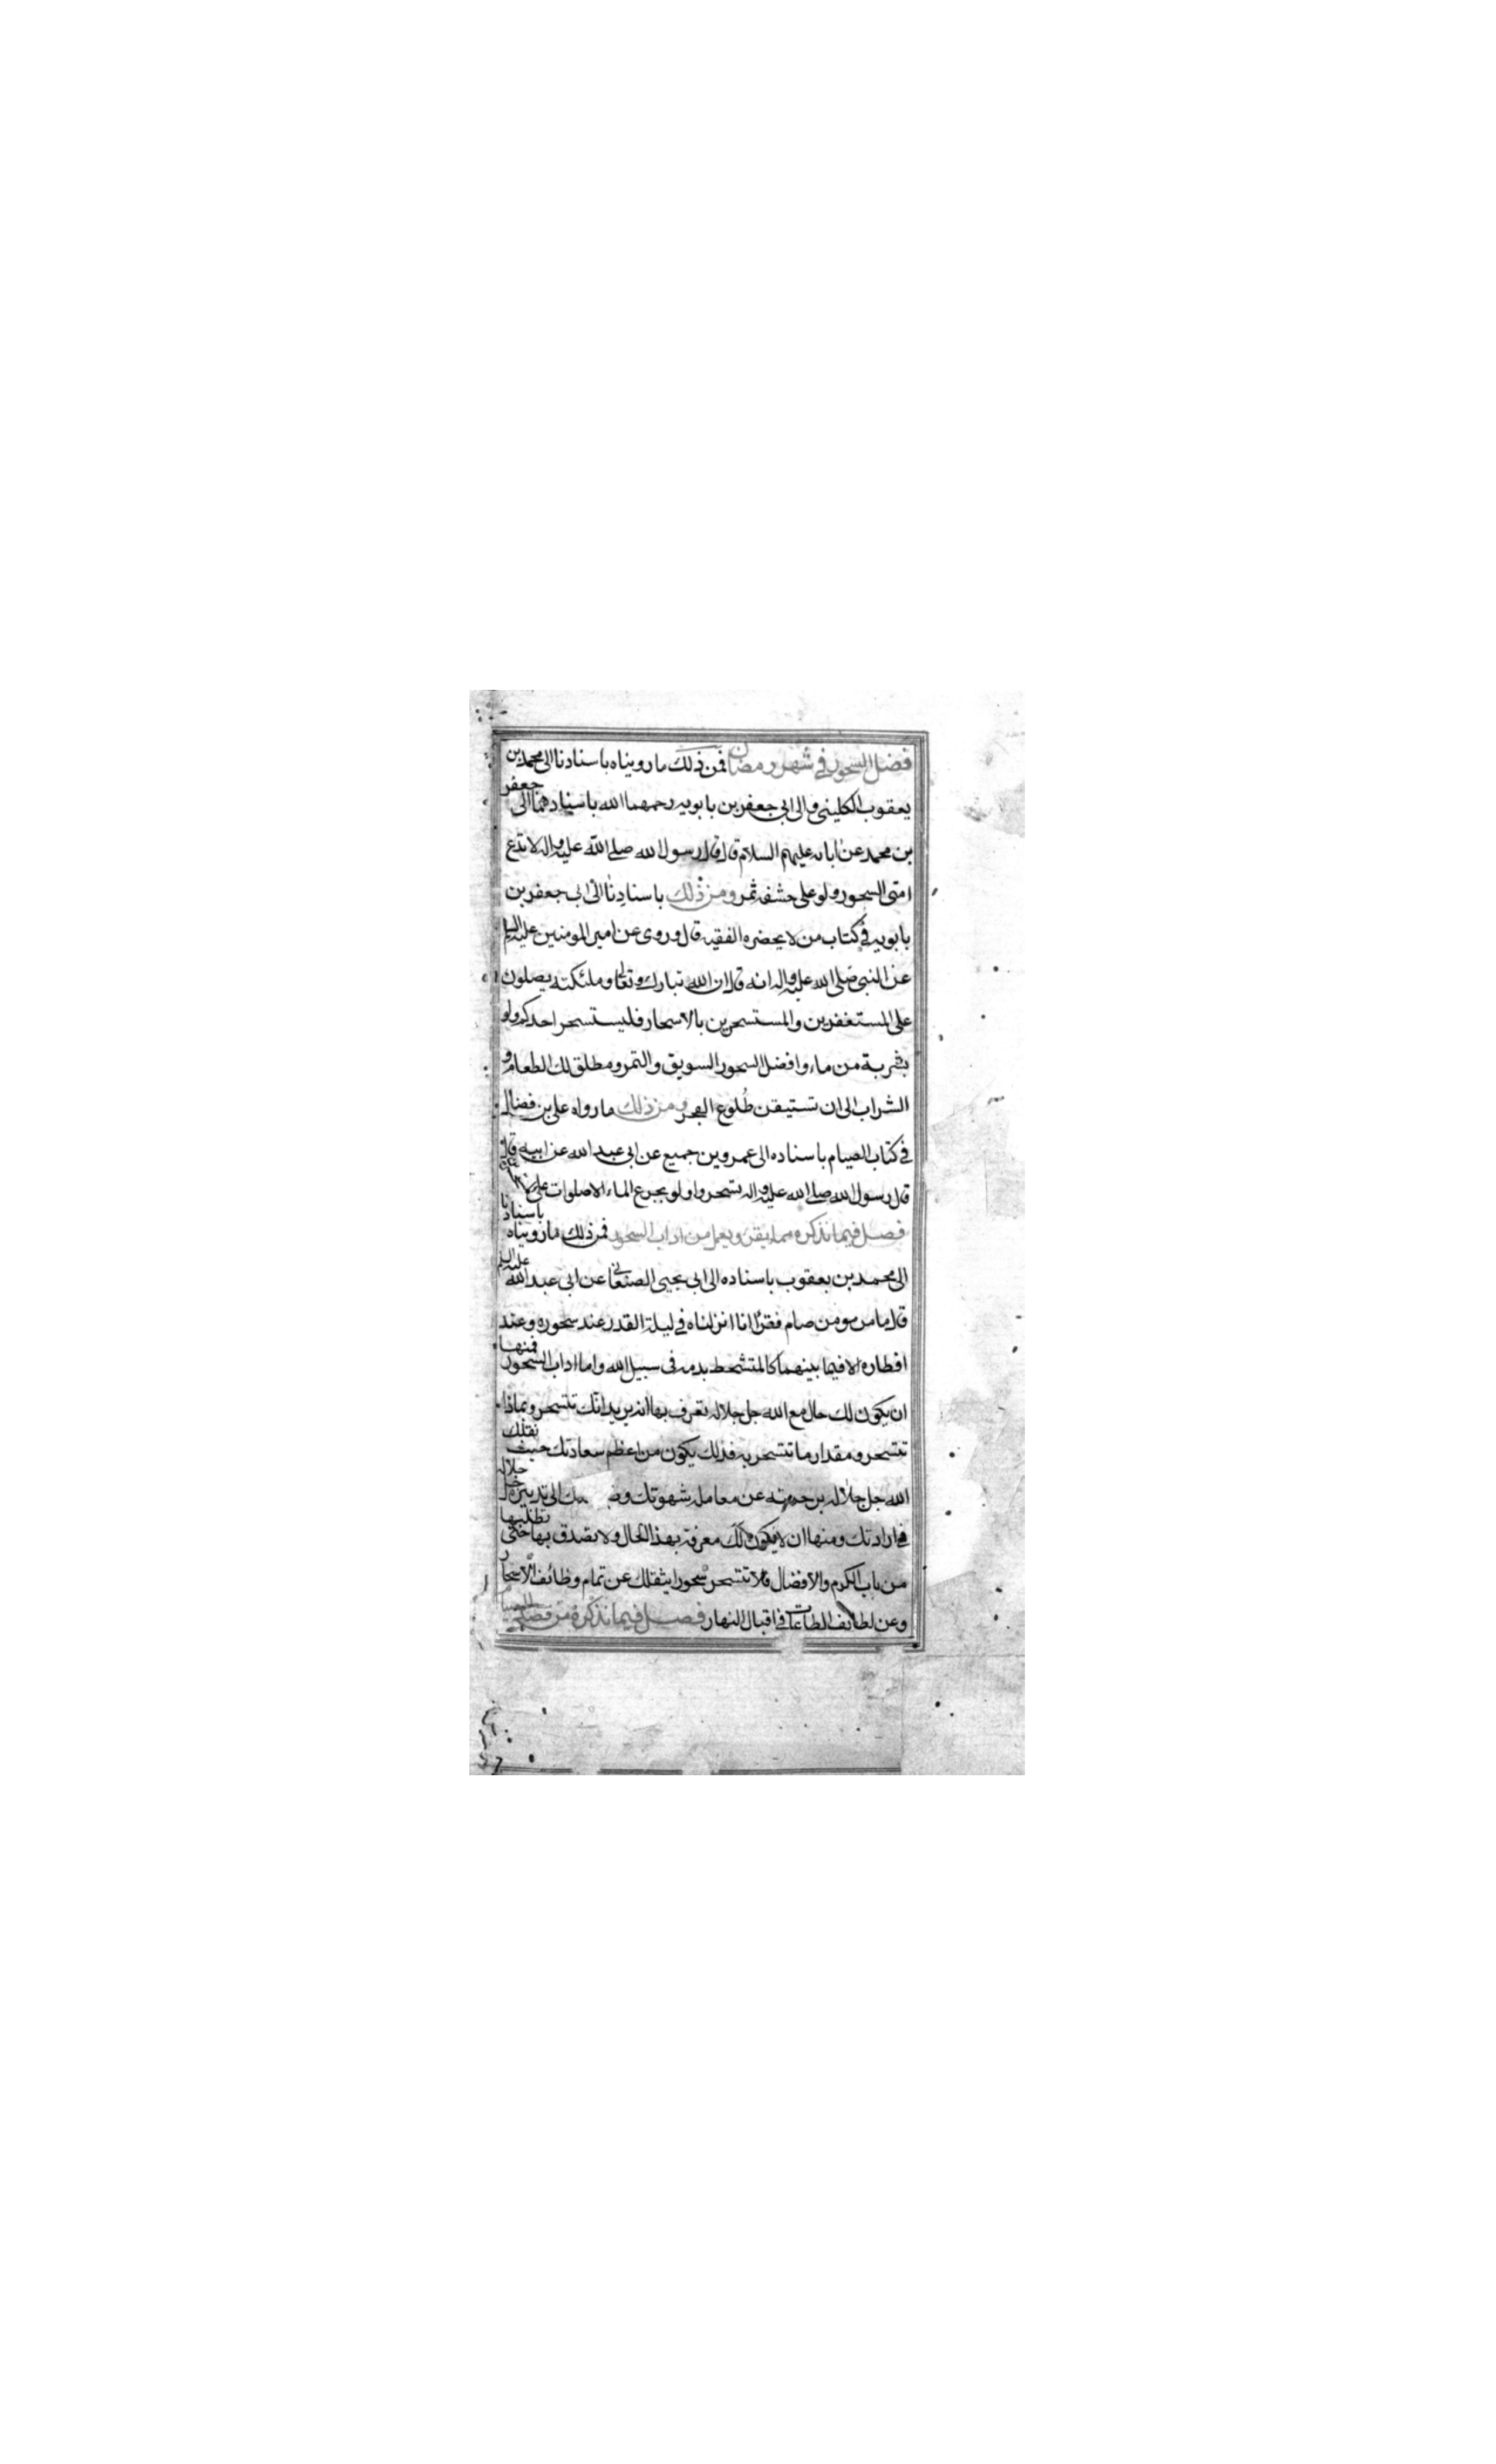 فضل السحور في شهر رمضان فمن ذلك ما رويناه باسنادنا الى محمد بن
يعقوب الكليني والى ابي جعفر بن بابويه رحمهما الله باسنادهما الى جعفر
بن محمد عن ابائه عليهم السلام قال قال رسول الله صلى الله عليه واله لا تدع
امتي السحور ولو على حشفه تمر ومن ذلك باسنادنا الى ابي جعفر بن
بابويه في كتاب من لا يحضره الفقيه قال وروى عن امير المومنين عليه السلم
عن النبي صلى الله عليه واله انه قال ان الله تبارك وتعالى وملئكته يصلون
على المستغفرين والمستسحرين بالاسحار فليستسحر احدكم ولو
بشربة من ماء وافضل السحور السويق والتمر ومطلق لك الطعام و
الشراب الى ان تستيقن طلوع الفجر ومن ذلك ما رواه علي بن فضال
في كتاب الصيام باسناده الى عمرو بن جميع عن ابي عبد الله عن ابيه قال
قال رسول الله صلى الله عليه واله تسحروا ولو بجرع الماء الا صلوات
فصل فيما نذكره مما يقرء ويعمل من اداب السحور فمن ذلك ما رويناه باسنادنا
الى محمد بن يعقوب باسناده الى ابي يحيى الصنعاني عن ابي عبد الله عليه السلم
قال ما من مومن صام فقرا انا انزلناه في ليلة القدر عند سحوره وعند
افطاره الا فيما بينهما كالمتشحط بدمه في سبيل الله واما اداب السحور فمنها
ان يكون لك حال مع الله جل جلاله تعرف بها انه يريد انك تتسحر وبماذا
تتسحر ومقدار ما تتسحر به فذلك يكون من اعظم سعادتك حيث نقلك
الله جل جلاله برحمته عن معاملة شهوتك الى تدبيره جل جلاله
في ارادتك ومنها ان لا يكون لك معرفة بهذا الحال ولا تصدق بها حتى تطلبها
من باب الكرم والافضال فلا تتسحر سحورا يثقلك عن تمام وظائف الاسحار
وعن لطائف الطاعات في اقبال النهار فصل فيما نذكره من قصد الصيام